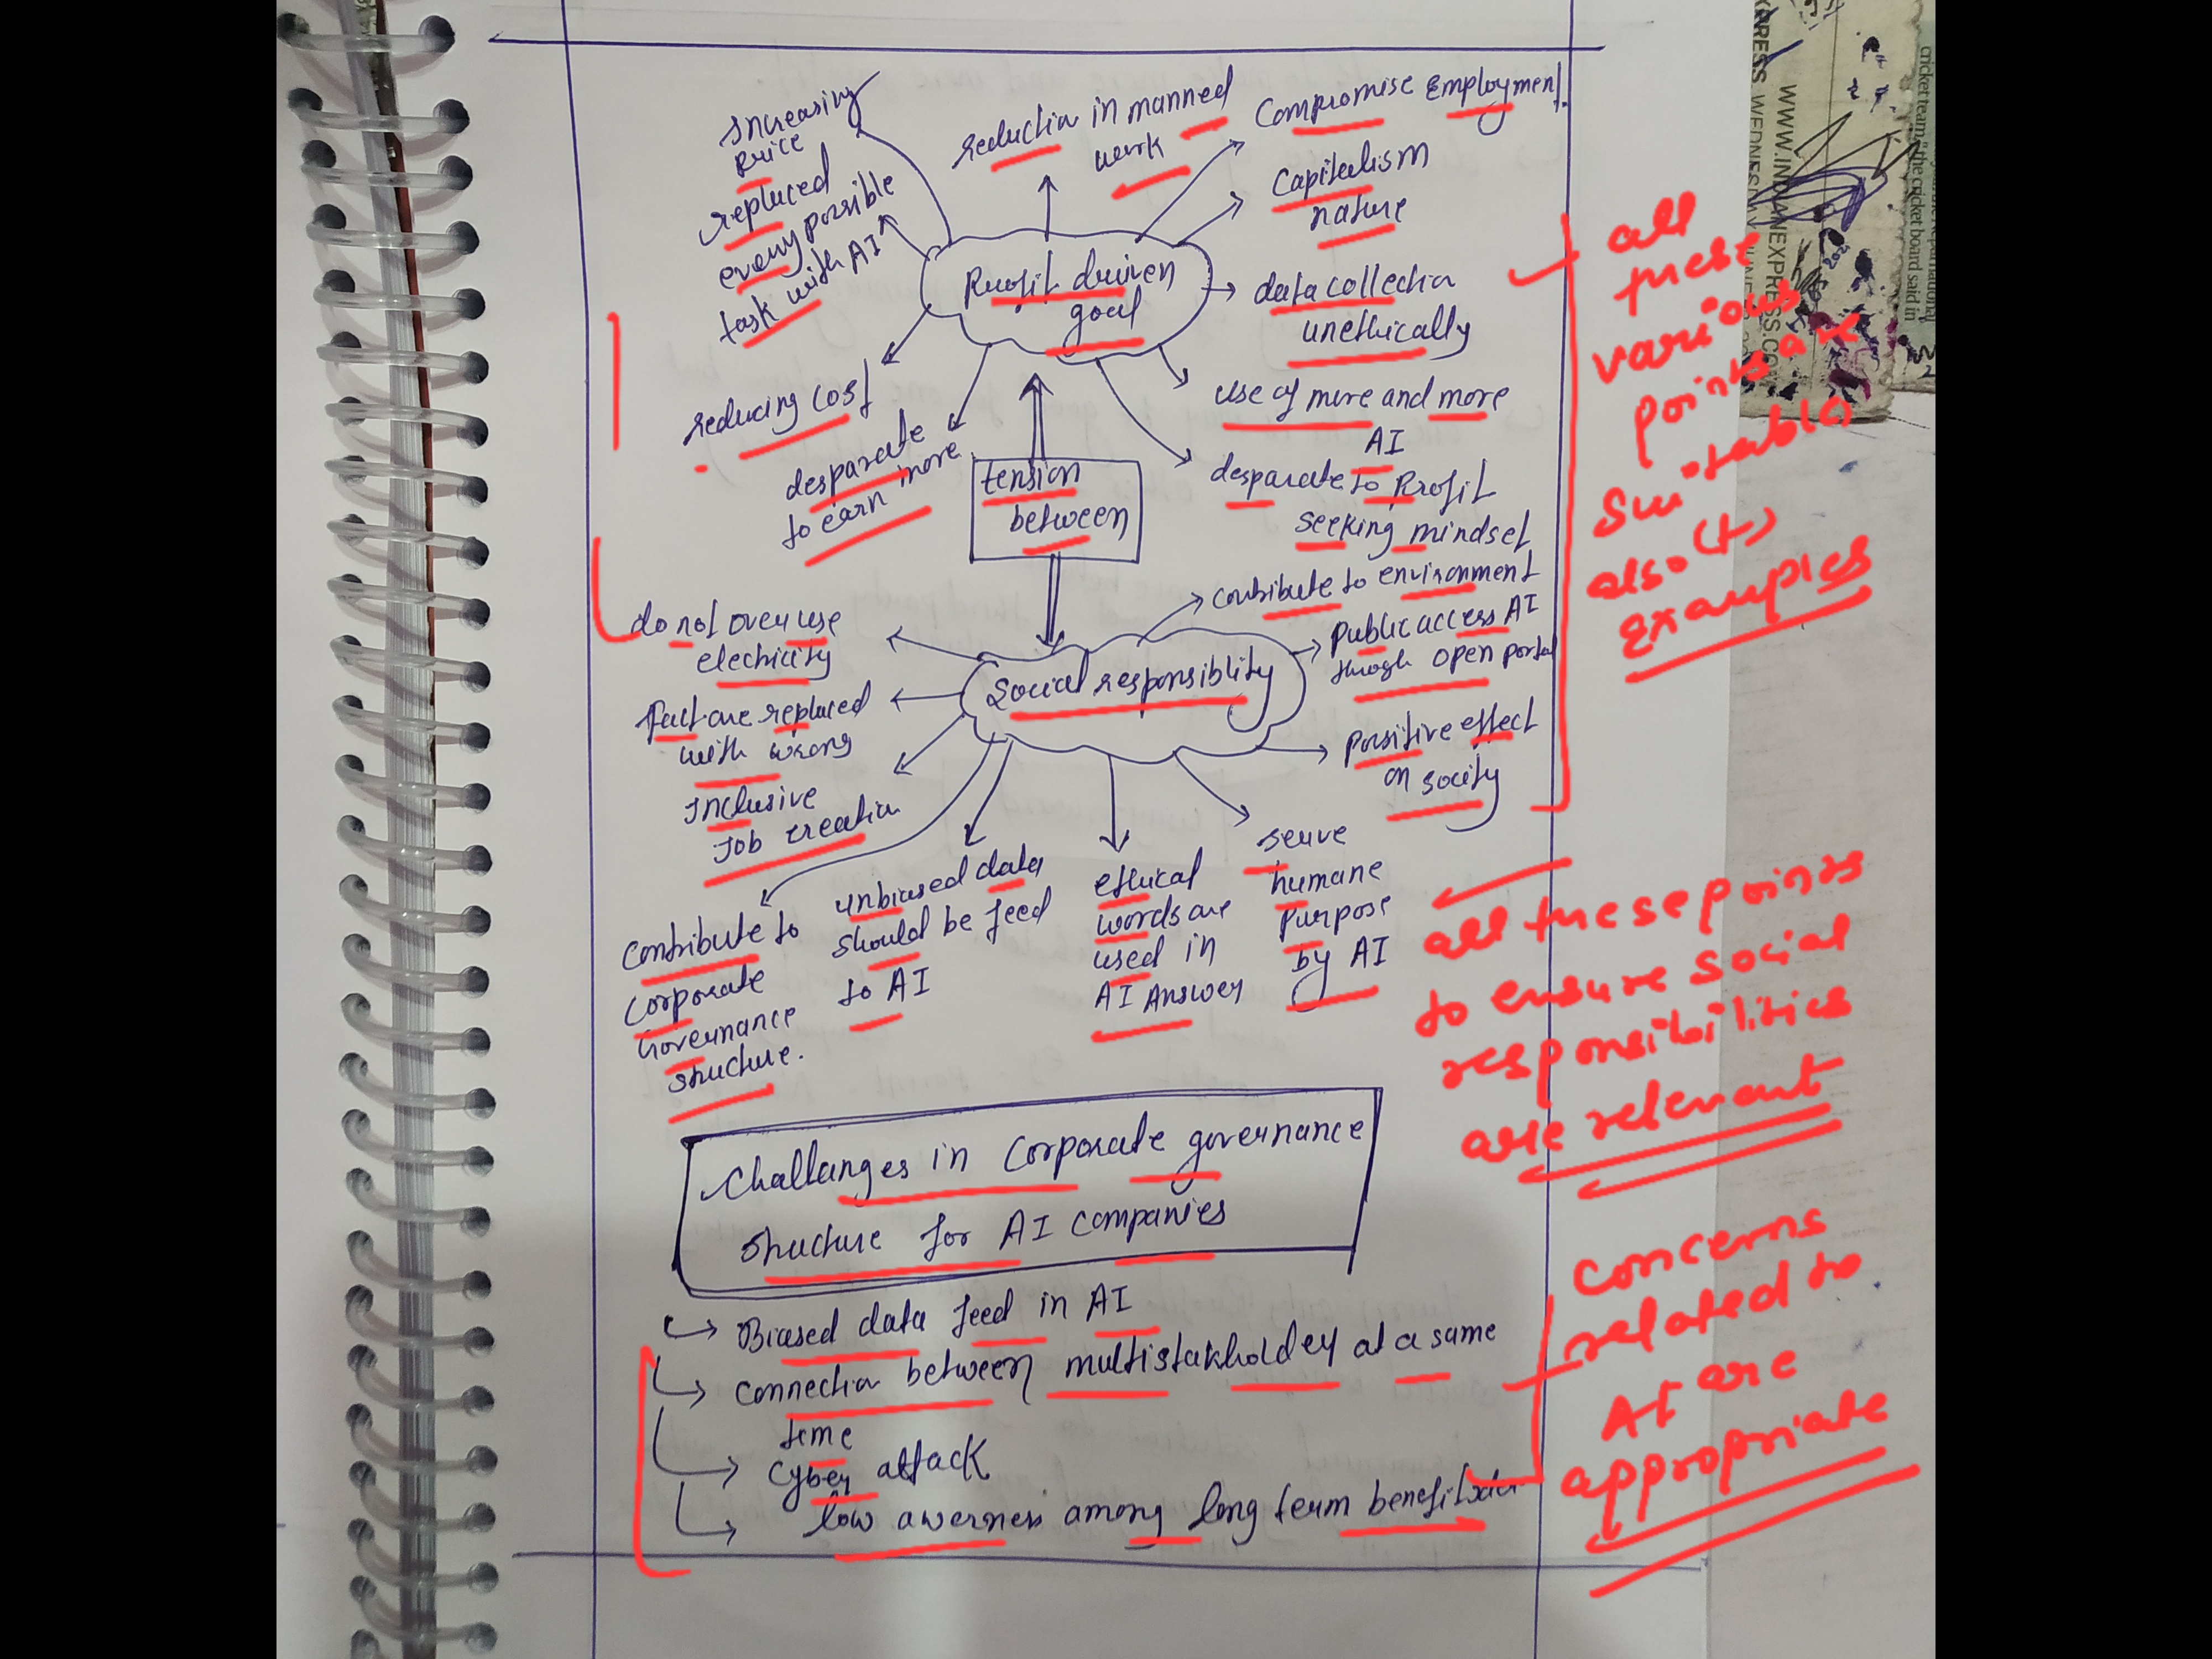 Increasing
Price
replaced
every possible
task with AI
reduction in manned
work
Compromise Employment.
Capitalism
nature
Profit driven
goal
data collection
unethically
use of more and more
AI
desparate to Profit
seeking mindset
reducing cost
desparate
to earn more
tension
between
contribute to environment
Public access AI
through open portal
positive effect
on socity
Social responsiblity
do not over use
electricity
Fact are replaced
with wrong
Inclusive
Job creation
Contribute to
Corporate
Governance
structure.
unbiased data
should be feed
to AI
ethical
words are
used in
AI Answer
serve
humane
Purpose
by AI
Challanges in Corporate governance
structure for AI companies
Biased data feed in AI
Connection between multistakholder at a same
time
Cyber attack
low awerness among long term benefits
all
these
various
points are
suitable
also (+)
examples
all these points
to ensure social
responsibilities
are relevant
Concerns
related to
AI are
appropriate
XPRESS WEDNESDAY
WWW.INDIANEXPRESS.CO
cricket team," the cricket board said in